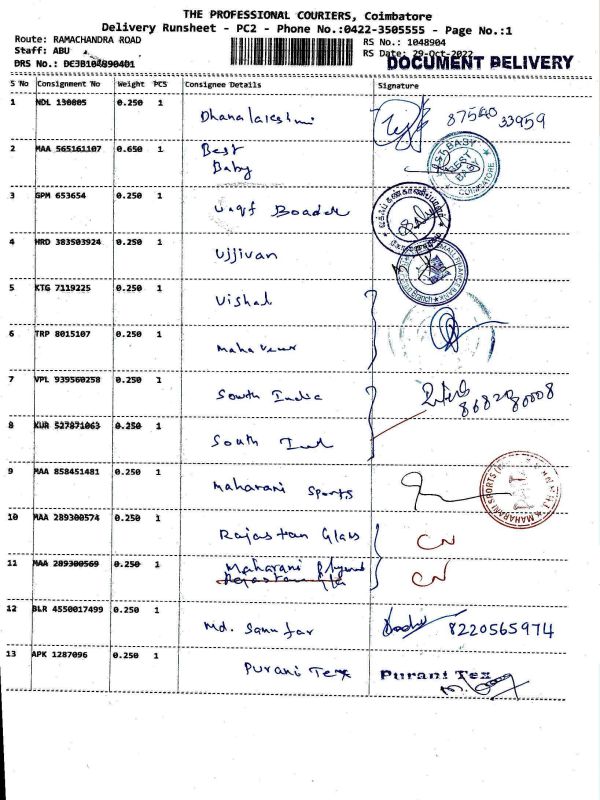 THE PROFESSIONAL COURIERS, Coimbatore
Delivery Runsheet - PC2 - Phone No.:0422-3505555 - Page No.:1
Route: RAMACHANDRA ROAD
RS No.: 1048904
Staff: ABU
RS Date: 29-Oct-2022
DRS No.: DCJB104890401
DOCUMENT DELIVERY
S No Consignment No Weight PCS Consignee Details Signature
1 NDL 130005 0.250 1 Dhanalakshmi 87540 33959
2 MAA 565161107 0.650 1 Best Baby
BEST BABY
COIMBATORE
3 GPM 653654 0.250 1
4 HRD 383503924 0.250 1 Ujjivan
5 KTG 7119225 0.250 1 Vishal
6 TRP 8015107 0.250 1
7 VPL 939560258 0.250 1 South India 86820 80008
8 KUR 527871063 0.250 1 South Ind
9 MAA 858451481 0.250 1 Maharani Sports
MAHARANI SPORTS
10 MAA 289300574 0.250 1 Rajastan Glass CN
11 MAA 289300569 0.250 1 Maharani CN
12 BLR 4550017499 0.250 1 8220565974
13 APK 1287096 0.250 1 Purani Tex Purani Tex